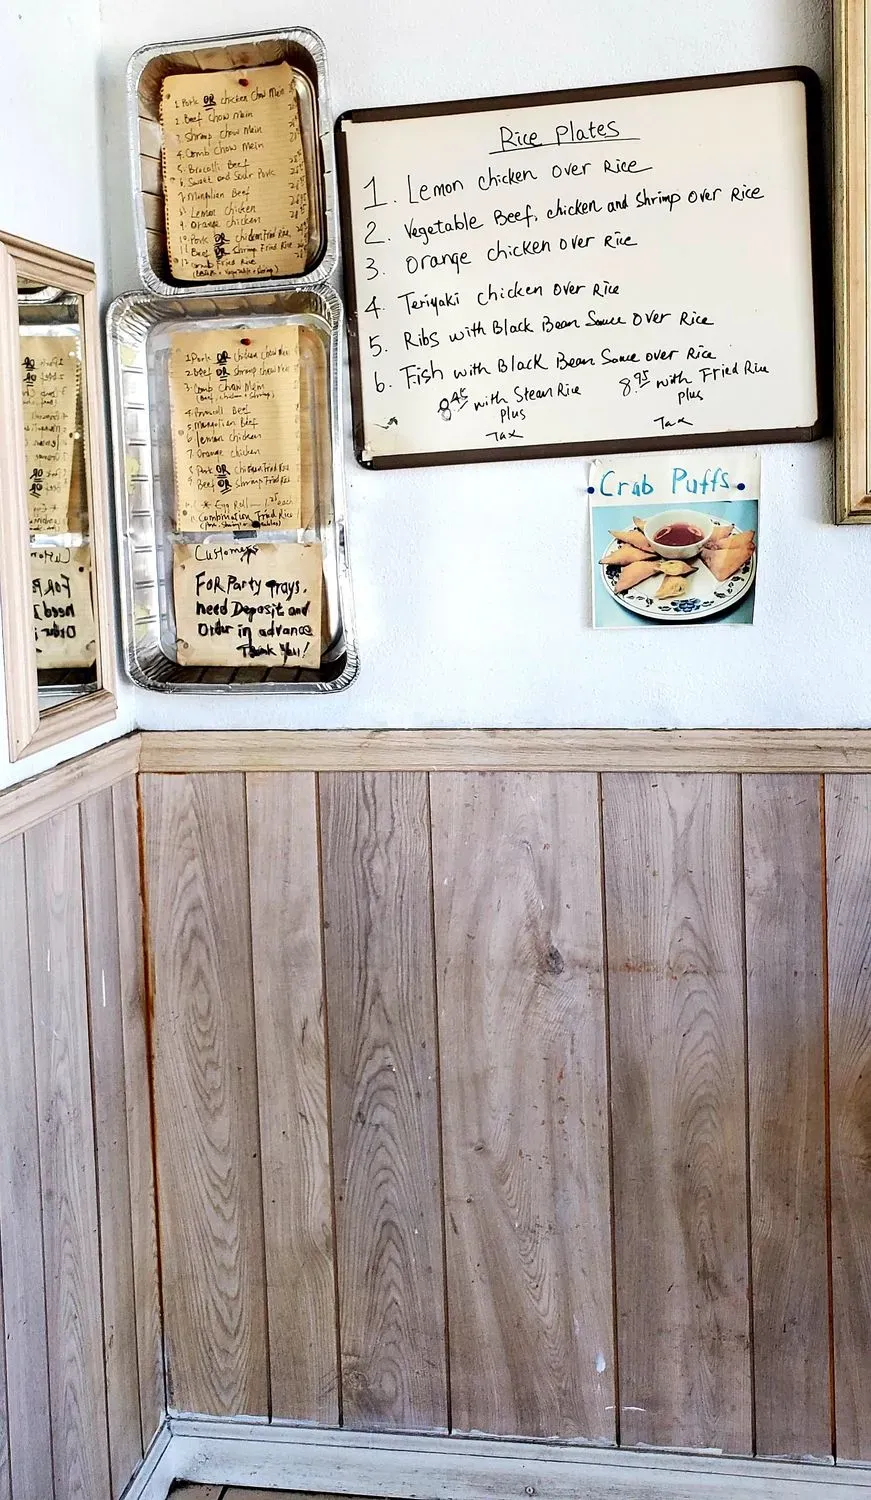 1 Pork OR chicken Chow Mein
2. Beef Chow Mein
3 Shrimp Chow Mein
4. Comb Chow Mein
5. Brocolli Beef
6. Sweet and Sour Pork
7. Mongolian Beef
8 Lemon chicken
9. Orange chicken
10. Pork OR chicken Fried Rice
11 Beef OR Shrimp Fried Rice
12 Combo Fried Rice
1 Pork OR chicken Chow Mein
2. Beef OR shrimp Chow Mein
3. Comb Chow Mein
(Beef, chicken + shrimp)
4 Brocoli Beef
5 Mongolian Beef
6 lemon chicken
7. Orange chicken
8 Pork OR chicken Fried Rice
9 Beef OR Shrimp Fried Rice
* Egg Roll — each
Combination Fried Rice
Customers
FOR Party Trays,
need Deposit and
Order in advance
Thank You!
Rice Plates
1. Lemon chicken Over Rice
2. Vegetable Beef, chicken and Shrimp Over Rice
3. Orange chicken Over Rice
4. Teriyaki chicken Over Rice
5. Ribs with Black Bean Sauce Over Rice
6. Fish with Black Bean Sauce over Rice
8.45 with Steam Rice
plus
Tax
8.95 with Fried Rice
plus
Tax
Crab Puffs